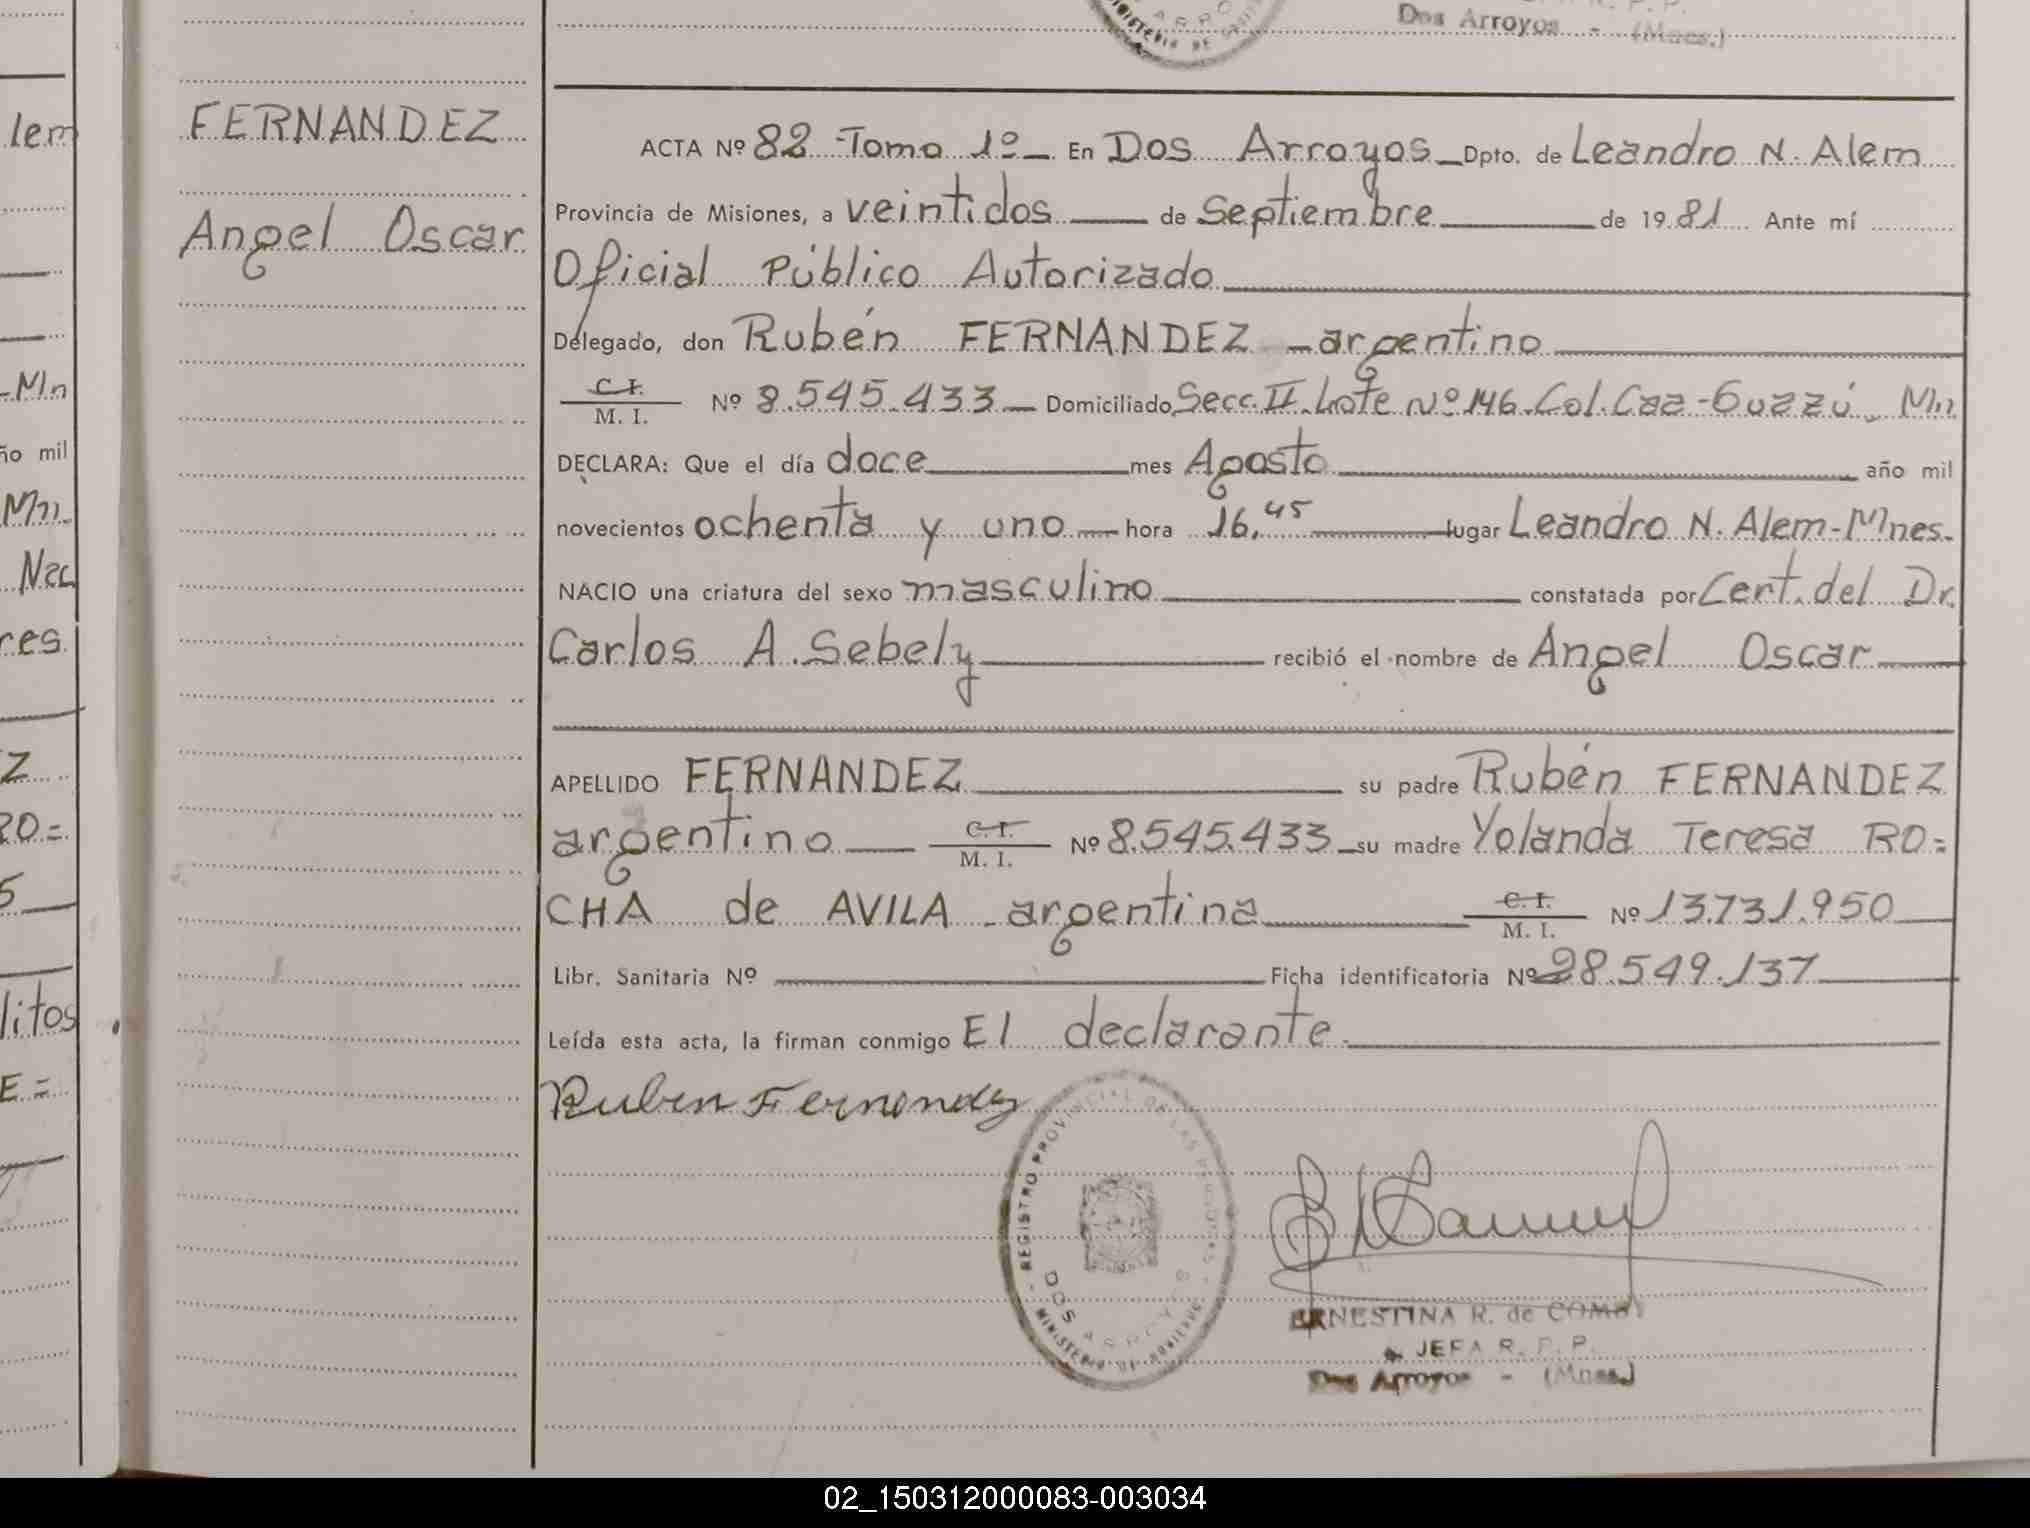 Dos Arroyos - (Mnes.)
lem
FERNANDEZ
Angel Oscar
ACTA Nº 82 - Tomo 1º - En Dos Arroyos - Dpto. de Leandro N. Alem
Provincia de Misiones, a veintidos de Septiembre de 1981 Ante mí
Oficial Público Autorizado
Delegado, don Rubén FERNANDEZ - argentino
C. I.
M. I. Nº 8.545.433 - Domiciliado Secc. II. Lote Nº 146. Col. Caa-Guazzú. Mn
DECLARA: Que el día doce mes Agosto año mil
novecientos ochenta y uno hora 16,45 lugar Leandro N. Alem-Mnes.
NACIO una criatura del sexo masculino constatada por Cert. del Dr.
Carlos A. Sebely recibió el nombre de Angel Oscar
APELLIDO FERNANDEZ su padre Rubén FERNANDEZ
argentino C. I.
M. I. Nº 8.545.433 - su madre Yolanda Teresa RO=
CHA de AVILA - argentina C. I.
M. I. Nº 13.731.950
Libr. Sanitaria Nº Ficha identificatoria Nº 28.549.137
Leída esta acta, la firman conmigo El declarante.
Ruben Fernandez
REGISTRO PROVINCIAL DE LAS PERSONAS
DOS ARROYOS
MINISTERIO DE GOBIERNO
ERNESTINA R. de COMBI
JEFA R. P. P.
Dos Arroyos - (Mnes.)
-Mn
ño mil
Mn.
Nac
res
Z
RO=
5
litos
E=
02_150312000083-003034